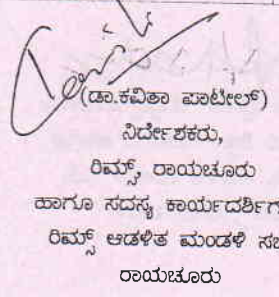 (ಡಾ.ಕವಿತಾ ಪಾಟೀಲ್)
ನಿರ್ದೇಶಕರು,
ರಿಮ್ಸ್, ರಾಯಚೂರು
ಹಾಗೂ ಸದಸ್ಯ ಕಾರ್ಯದರ್ಶಿಗ
ರಿಮ್ಸ್ ಆಡಳಿತ ಮಂಡಳಿ ಸಭ
ರಾಯಚೂರು